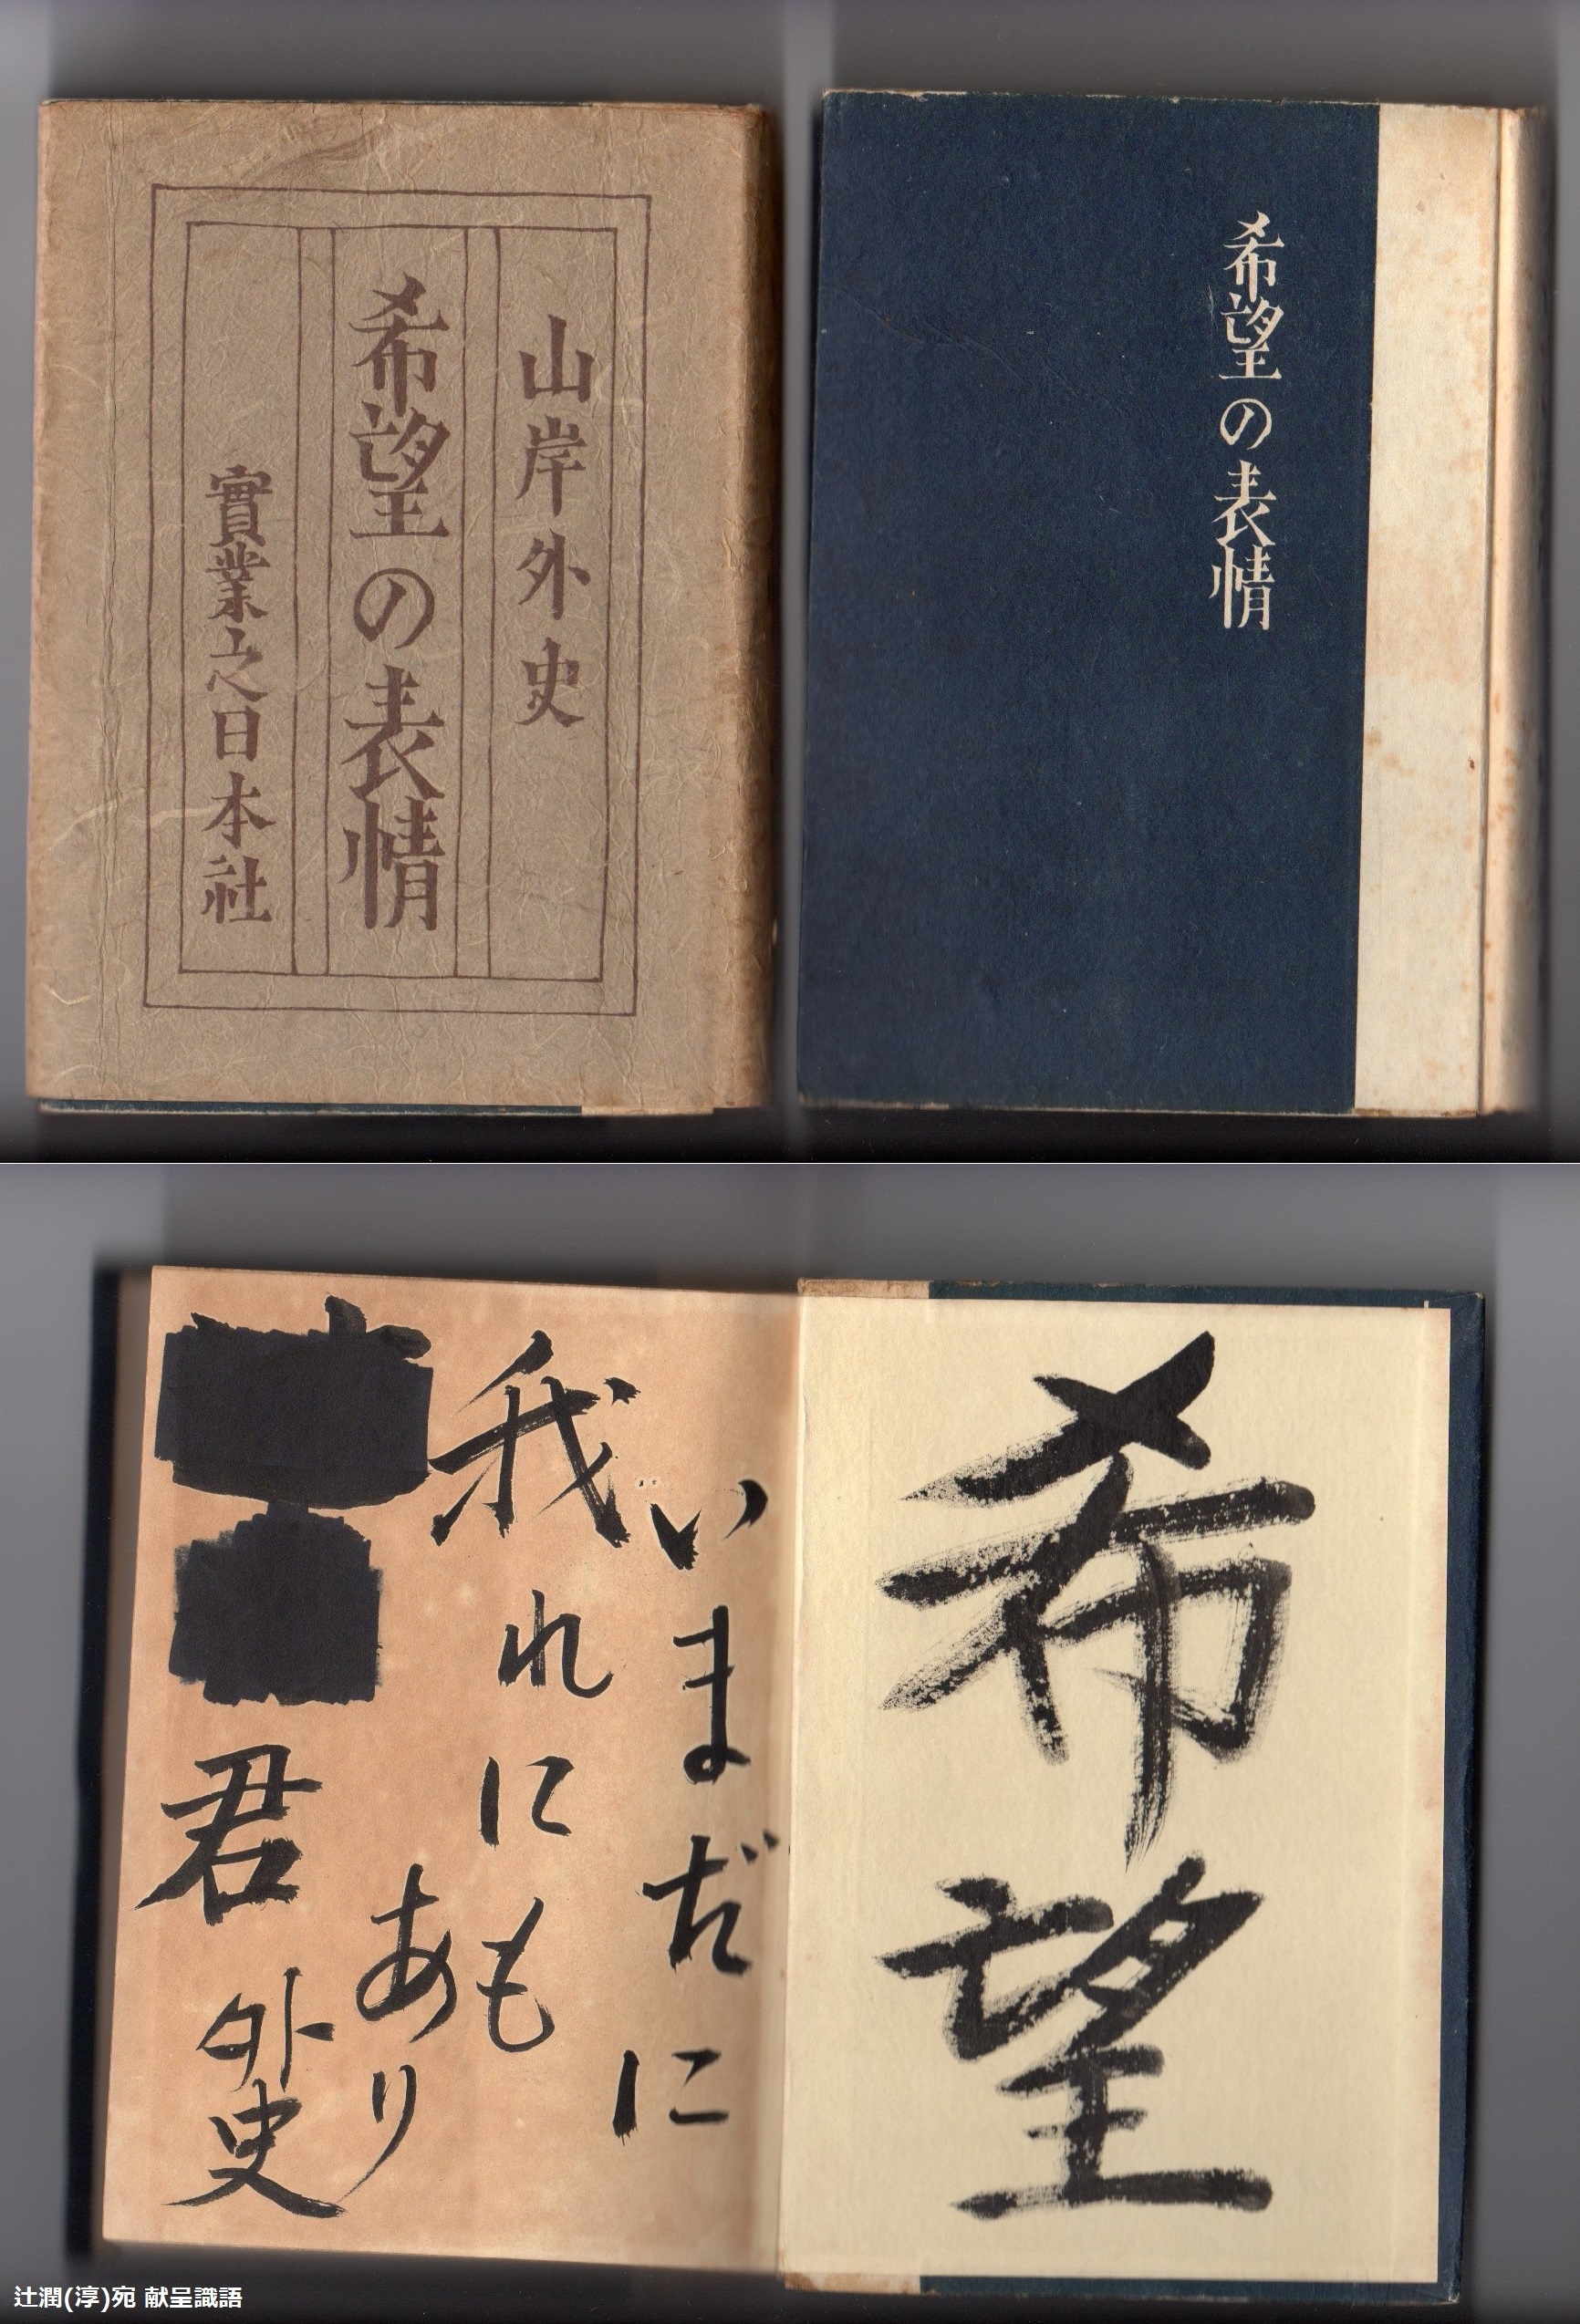 山岸外史
希望の表情
實業之日本社
希望の表情
希望
いまだに
我れにも
あり
君
外史
辻潤(淳)宛 献呈識語